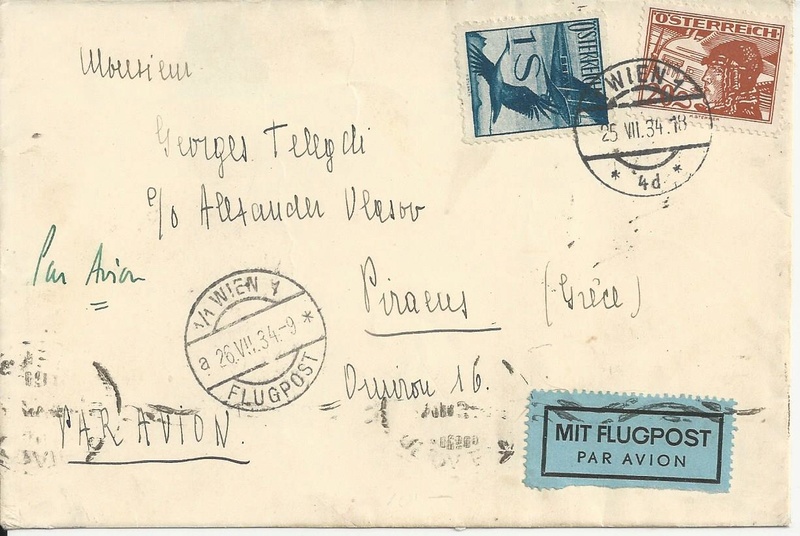 Monsieur
ÖSTERREICH
1S
ÖSTERREICH
WIEN 1
25 VII. 34. 18
* 4d *
Georges Telegdi
c/o Alexander Vlasov
Par Avion
Piraeus (Grèce)
1/1 WIEN 1
a 26.VII.34.-9 *
FLUGPOST
Omirou 16.
PAR AVION.
MIT FLUGPOST
PAR AVION